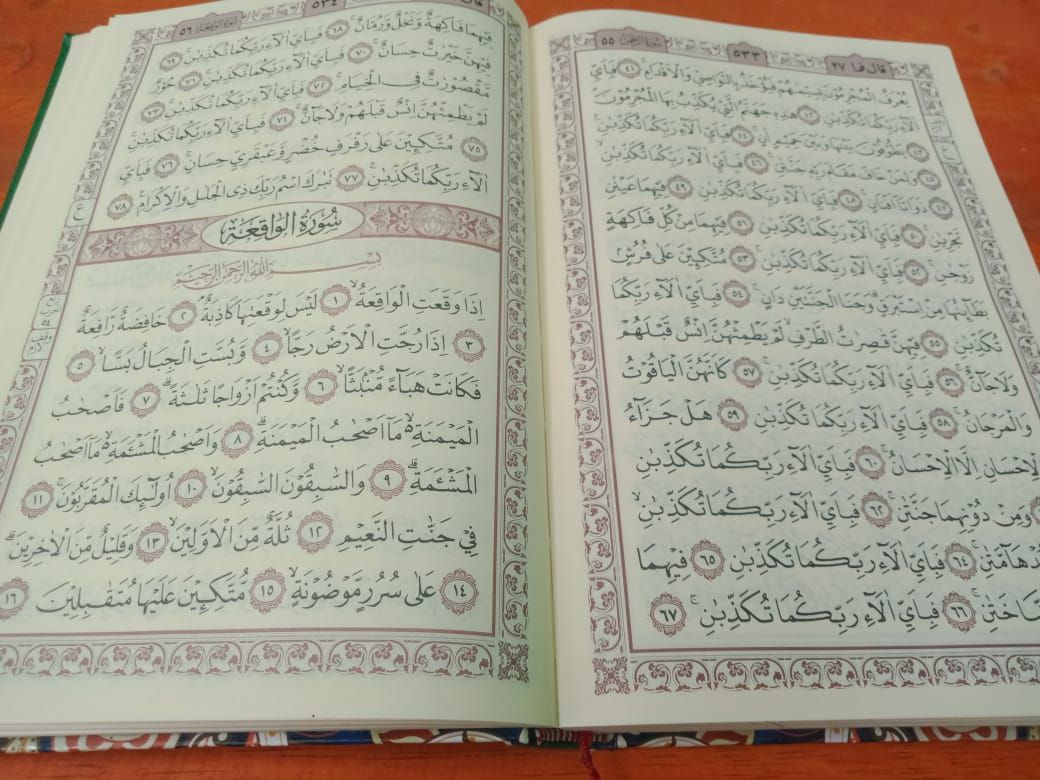 قال فما ٢٧
٥٣٣
سورة الرحمن ٥٥
يُعْرَفُ الْمُجْرِمُوْنَ بِسِيْمٰهُمْ فَيُؤْخَذُ بِالنَّوَاصِيْ وَالْاَقْدَامِۚ ٤١ فَبِاَيِّ
اٰلَاۤءِ رَبِّكُمَا تُكَذِّبٰنِ ٤٢ هٰذِهٖ جَهَنَّمُ الَّتِيْ يُكَذِّبُ بِهَا الْمُجْرِمُوْنَۘ
٤٣ يَطُوْفُوْنَ بَيْنَهَا وَبَيْنَ حَمِيْمٍ اٰنٍۚ ٤٤ فَبِاَيِّ اٰلَاۤءِ رَبِّكُمَا تُكَذِّبٰنِ
٤٥ وَلِمَنْ خَافَ مَقَامَ رَبِّهٖ جَنَّتٰنِۚ ٤٦ فَبِاَيِّ اٰلَاۤءِ رَبِّكُمَا تُكَذِّبٰنِۙ
٤٧ ذَوَاتَآ اَفْنَانٍۚ ٤٨ فَبِاَيِّ اٰلَاۤءِ رَبِّكُمَا تُكَذِّبٰنِ ٤٩ فِيْهِمَا عَيْنٰنِ
تَجْرِيٰنِۚ ٥٠ فَبِاَيِّ اٰلَاۤءِ رَبِّكُمَا تُكَذِّبٰنِ ٥١ فِيْهِمَا مِنْ كُلِّ فَاكِهَةٍ
زَوْجٰنِۚ ٥٢ فَبِاَيِّ اٰلَاۤءِ رَبِّكُمَا تُكَذِّبٰنِۚ ٥٣ مُتَّكِـِٕيْنَ عَلٰى فُرُشٍۢ
بَطَاۤىِٕنُهَا مِنْ اِسْتَبْرَقٍۗ وَجَنَا الْجَنَّتَيْنِ دَانٍۚ ٥٤ فَبِاَيِّ اٰلَاۤءِ رَبِّكُمَا
تُكَذِّبٰنِ ٥٥ فِيْهِنَّ قٰصِرٰتُ الطَّرْفِۙ لَمْ يَطْمِثْهُنَّ اِنْسٌ قَبْلَهُمْ
وَلَا جَاۤنٌّۚ ٥٦ فَبِاَيِّ اٰلَاۤءِ رَبِّكُمَا تُكَذِّبٰنِۚ ٥٧ كَاَنَّهُنَّ الْيَاقُوْتُ
وَالْمَرْجَانُۚ ٥٨ فَبِاَيِّ اٰلَاۤءِ رَبِّكُمَا تُكَذِّبٰنِ ٥٩ هَلْ جَزَاۤءُ
الْاِحْسَانِ اِلَّا الْاِحْسَانُۚ ٦٠ فَبِاَيِّ اٰلَاۤءِ رَبِّكُمَا تُكَذِّبٰنِ
وَمِنْ دُوْنِهِمَا جَنَّتٰنِۚ ٦٢ فَبِاَيِّ اٰلَاۤءِ رَبِّكُمَا تُكَذِّبٰنِۙ
٦٤ فَبِاَيِّ اٰلَاۤءِ رَبِّكُمَا تُكَذِّبٰنِۚ ٦٥ فِيْهِمَا
٦٦ فَبِاَيِّ اٰلَاۤءِ رَبِّكُمَا تُكَذِّبٰنِۚ ٦٧
٥٣٤
سورة الواقعة ٥٦
فِيْهِمَا فَاكِهَةٌ وَّنَخْلٌ وَّرُمَّانٌۚ ٦٨ فَبِاَيِّ اٰلَاۤءِ رَبِّكُمَا تُكَذِّبٰنِۚ ٦٩
فِيْهِنَّ خَيْرٰتٌ حِسَانٌۚ ٧٠ فَبِاَيِّ اٰلَاۤءِ رَبِّكُمَا تُكَذِّبٰنِۚ ٧١ حُوْرٌ
مَّقْصُوْرٰتٌ فِى الْخِيَامِۚ ٧٢ فَبِاَيِّ اٰلَاۤءِ رَبِّكُمَا تُكَذِّبٰنِۚ ٧٣
لَمْ يَطْمِثْهُنَّ اِنْسٌ قَبْلَهُمْ وَلَا جَاۤنٌّۚ ٧٤ فَبِاَيِّ اٰلَاۤءِ رَبِّكُمَا تُكَذِّبٰنِۚ
٧٥ مُتَّكِـِٕيْنَ عَلٰى رَفْرَفٍ خُضْرٍ وَّعَبْقَرِيٍّ حِسَانٍۚ ٧٦ فَبِاَيِّ
اٰلَاۤءِ رَبِّكُمَا تُكَذِّبٰنِۚ ٧٧ تَبٰرَكَ اسْمُ رَبِّكَ ذِى الْجَلٰلِ وَالْاِكْرَامِ ٧٨
سُوْرَةُ الْوَاقِعَةِ
بِسْمِ اللّٰهِ الرَّحْمٰنِ الرَّحِيْمِ
اِذَا وَقَعَتِ الْوَاقِعَةُۙ ١ لَيْسَ لِوَقْعَتِهَا كَاذِبَةٌۘ ٢ خَافِضَةٌ رَّافِعَةٌ
٣ اِذَا رُجَّتِ الْاَرْضُ رَجًّاۙ ٤ وَّبُسَّتِ الْجِبَالُ بَسًّاۙ ٥
فَكَانَتْ هَبَاۤءً مُّنْۢبَثًّاۙ ٦ وَّكُنْتُمْ اَزْوَاجًا ثَلٰثَةًۗ ٧ فَاَصْحٰبُ
الْمَيْمَنَةِ ەۙ مَآ اَصْحٰبُ الْمَيْمَنَةِۗ ٨ وَاَصْحٰبُ الْمَشْـَٔمَةِ ەۙ مَآ اَصْحٰبُ
الْمَشْـَٔمَةِۗ ٩ وَالسّٰبِقُوْنَ السّٰبِقُوْنَۙ ١٠ اُولٰۤىِٕكَ الْمُقَرَّبُوْنَۚ ١١
فِيْ جَنّٰتِ النَّعِيْمِ ١٢ ثُلَّةٌ مِّنَ الْاَوَّلِيْنَۙ ١٣ وَقَلِيْلٌ مِّنَ الْاٰخِرِيْنَۗ
١٤ عَلٰى سُرُرٍ مَّوْضُوْنَةٍۙ ١٥ مُّتَّكِـِٕيْنَ عَلَيْهَا مُتَقٰبِلِيْنَ ١٦